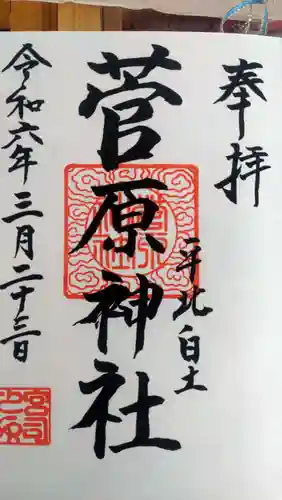 奉拝
平北白土
菅原神社
令和六年三月二十三日